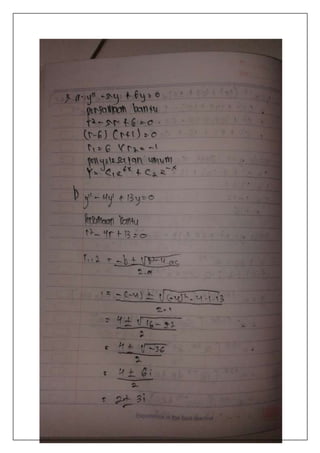 a. y'' - 5y' + 6y = 0
persamaan bantu
r² - 5r + 6 = 0
(r-6) (r+1) = 0
r₁ = 6 V r₂ = -1
penyelesaian umum
Y = C₁e⁶ˣ + C₂ e⁻ˣ
b y'' - 4y' + 13y = 0
persamaan bantu
r² - 4r + 13 = 0
r₁.₂ = -b ± √b²-4.ac
2.a
= -(-4) ± √(-4)² - 4.1.13
2.1
= 4 ± √16 - 52
2
= 4 ± √-36
2
= 4 ± 6i
2
= 2 ± 3i
Experience is the best teacher